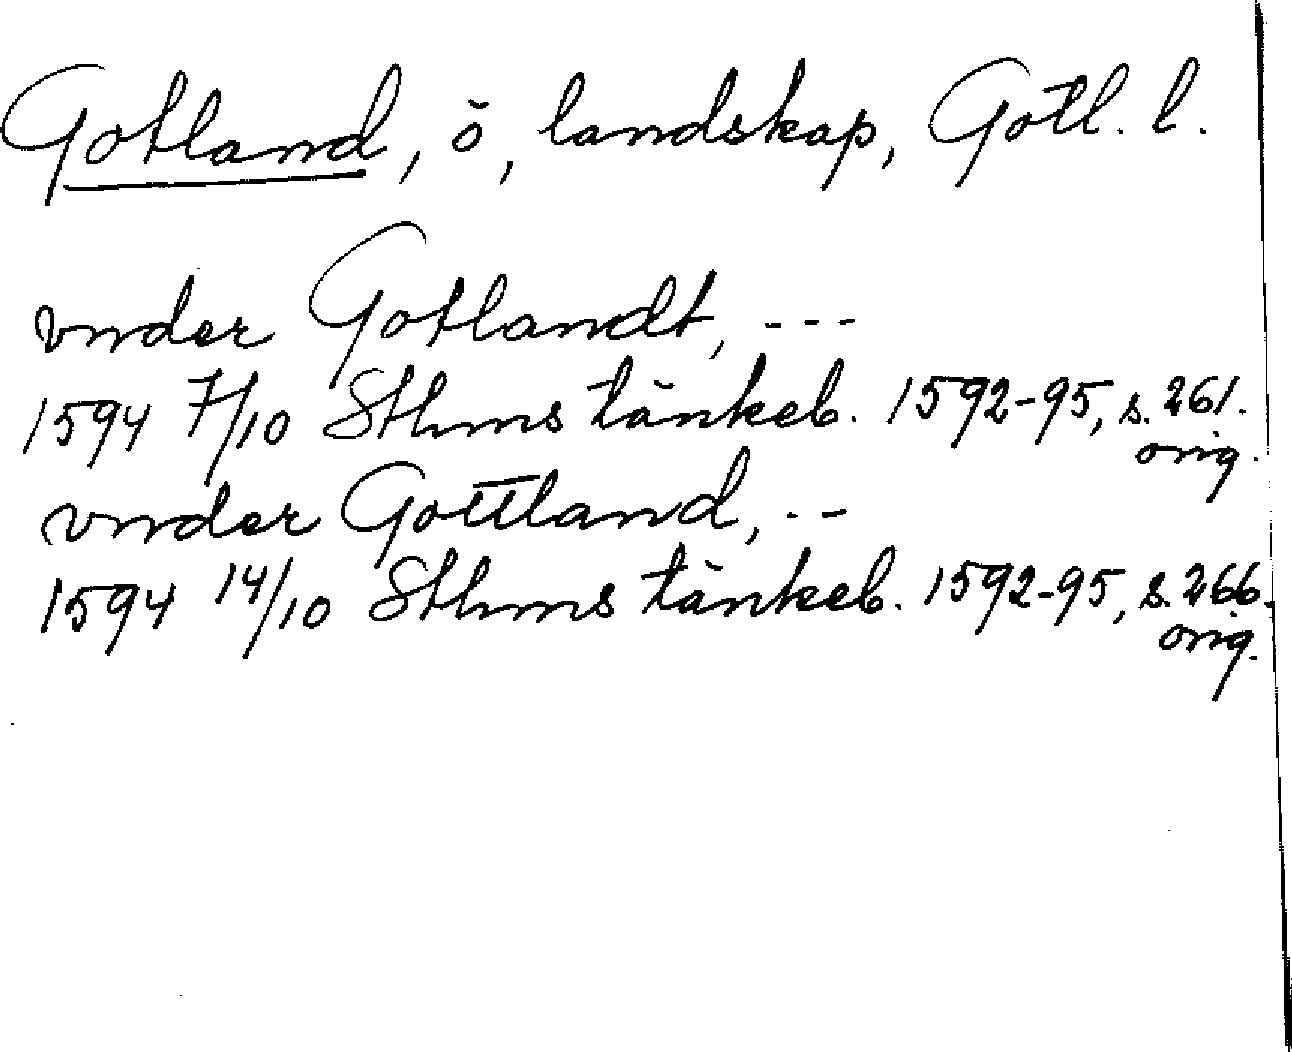 Gotland, ö, landskap, Gotl. l.
vnder Gotlandt, ---
1594 7/10 Sthms tänkeb. 1592-95, s. 261.
orig.
vnder Gottland, --
1594 14/10 Sthms tänkeb. 1592-95, s. 266.
orig.